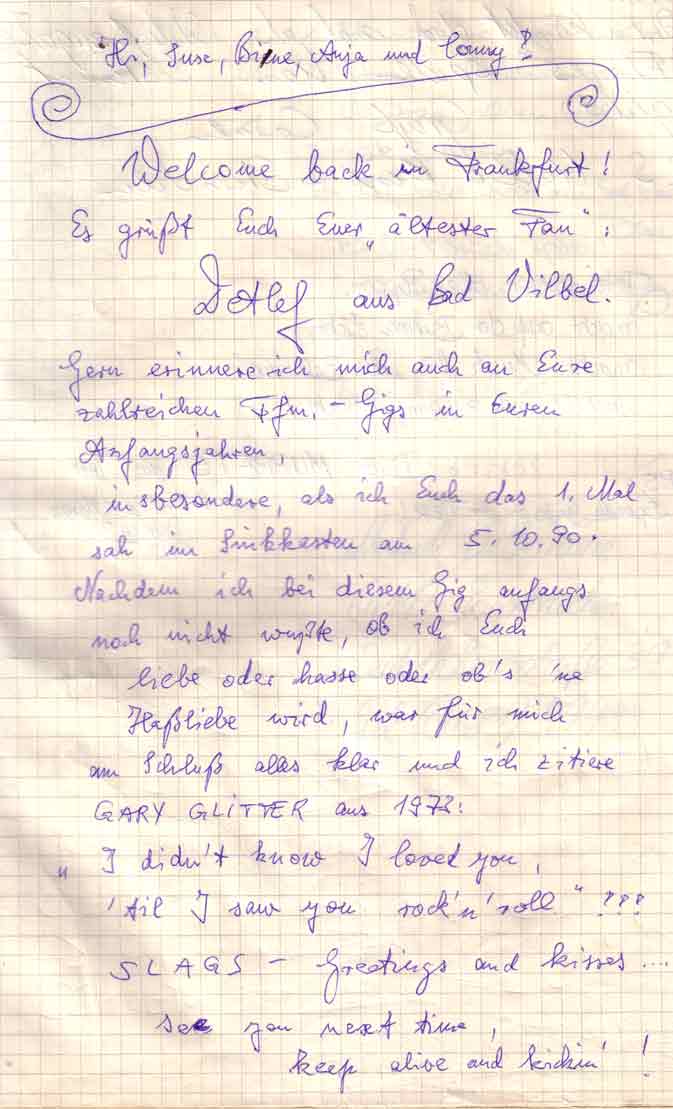 Hi, Suse, Biene, Anja und Conny!
Welcome back in Frankfurt!
Es grüßt Euch Euer „ältester Fan“:
Detlef aus Bad Vilbel.
Gern erinnere ich mich auch an Eure
zahlreichen Ffm.-Gigs in Euren
Anfangsjahren,
insbesondere, als ich Euch das 1. Mal
sah im Sinkkasten am 5.10.90.
Nachdem ich bei diesem Gig anfangs
noch nicht wußte, ob ich Euch
liebe oder hasse oder ob's 'ne
Haßliebe wird, war für mich
am Schluß alles klar und ich zitiere
GARY GLITTER aus 1972:
„I didn't know I loved you,
'til I saw you rock'n'roll“!!!
SLAGS - Greetings and kisses...
see you next time,
keep alive and kickin'!